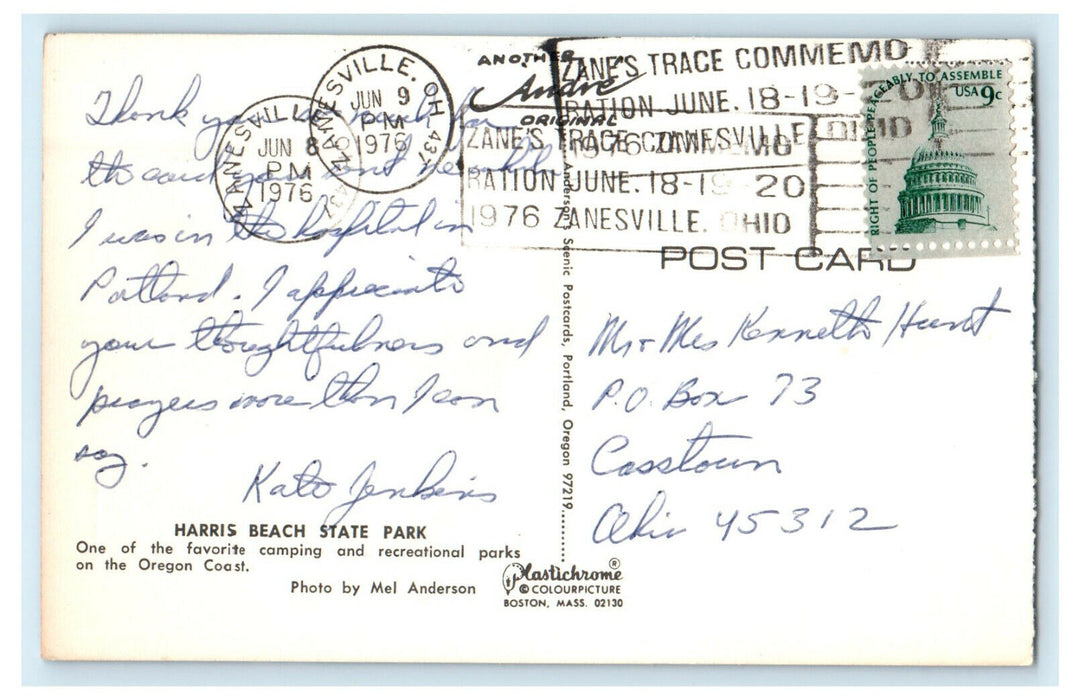 Thank you so much for
the card you sent
I was in the hospital in
Portland. I appreciate
your thoughtfulness and
prayers more than I can
say.
Kate Jenkins
HARRIS BEACH STATE PARK
One of the favorite camping and recreational parks
on the Oregon Coast.
Photo by Mel Anderson
ANOTHER
André
ORIGINAL
Anderson's Scenic Postcards, Portland, Oregon 97219
Plastichrome®
© COLOURPICTURE
BOSTON, MASS. 02130
ZANESVILLE, OH 437
JUN 8
PM
1976
ZANESVILLE, OH 437
JUN 9
PM
1976
ZANE'S TRACE COMMEMO
RATION JUNE. 18-19-20
1976 ZANESVILLE OHIO
ZANE'S TRACE COMMEMO
RATION JUNE. 18-19-20
1976 ZANESVILLE. OHIO
RIGHT OF PEOPLE PEACEABLY TO ASSEMBLE
USA 9c
POST CARD
Mr + Mrs Kenneth Hunt
P.O. Box 73
Casstown
Ohio 45312